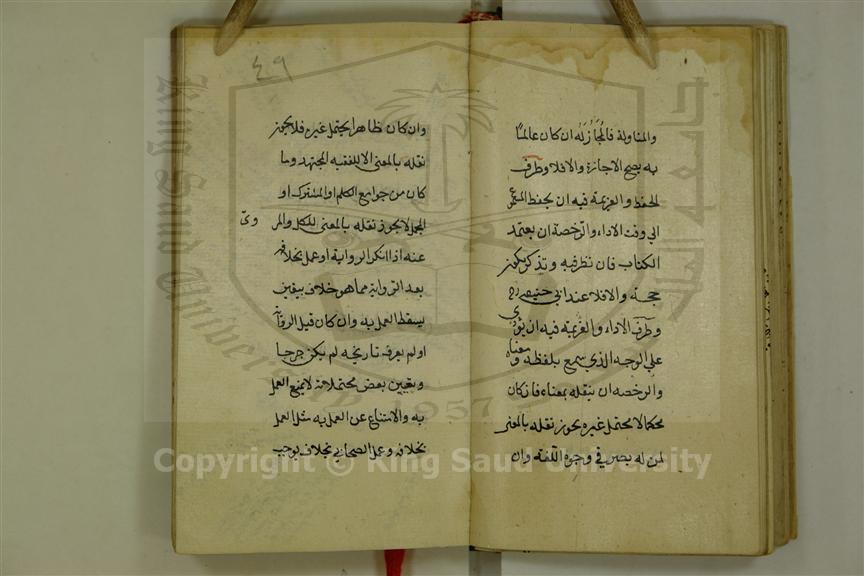 والمناولة فالمجاز له ان كان عالما
به يصح الاجازة والافلا وطرف
الحفظ والعزيمة فيه ان يحفظ المسموع
الي وقت الاداء والرخصة ان يعتمد
الكتاب فان نظر فيه وتذكر يكون
حجة والافلا عند ابي حنيفه رح
وطرف الاداء والعزيمة فيه ان يؤدي
علي الوجه الذي سمع بلفظه ومعناه
والرخصه ان ينقله بمعناه فان كان
محكما لا يحتمل غيره يجوز نقله بالمعنى
لمن له بصر في وجوه اللغة وان
٤٩
وان كان ظاهرا يحتمل غيره فلا يجوز
نقله بالمعنى الا للفقيه المجتهد وما
كان من جوامع الكلم او المشترك او
المجمل لا يجوز نقله بالمعنى للكل والمروى
عنه اذا انكر الرواية او عمل بخلافه
بعد الرواية مما هو خلاف بيقين
يسقط العمل به وان كان قبل الرواية
او لم يعرف تاريخه لم يكن جرحا
وتعيين بعض محتملاته لا يمنع العمل
به والامتناع عن العمل به مثل العمل
بخلافه وعمل الصحابي بخلافه يوجب
جامعة الملك
King Saud University
1957
Copyright © King Saud University